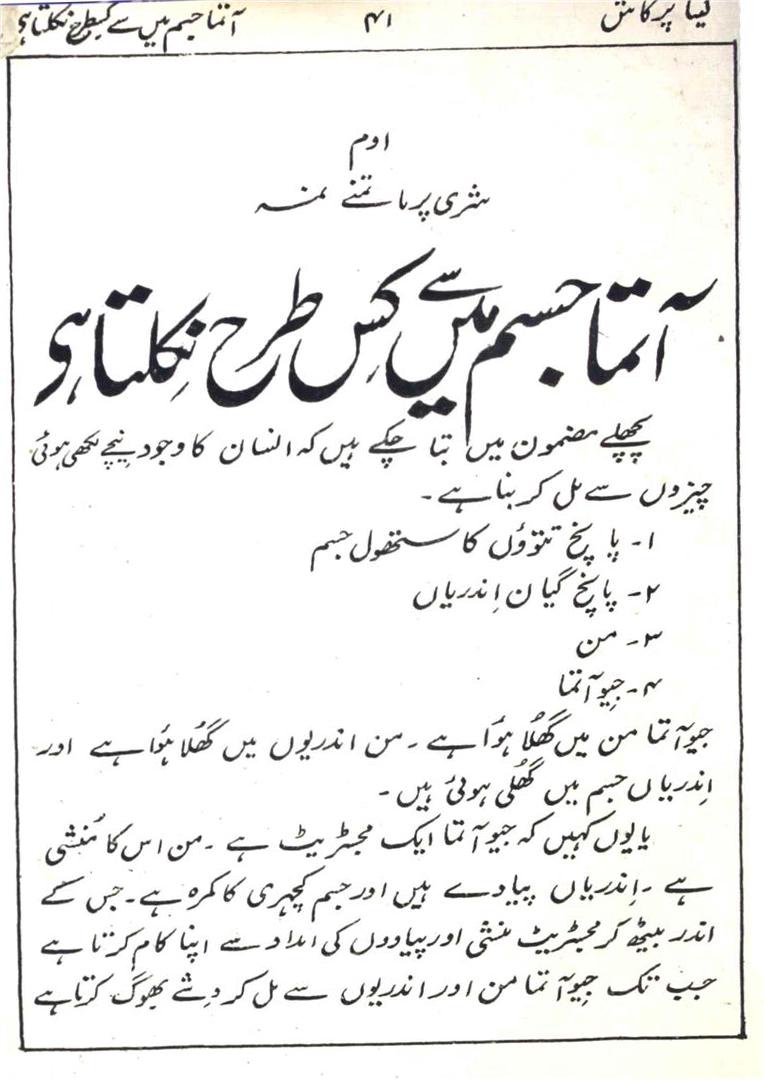 گیتا پرکاش ۴۱ آتما جسم میں سے کسطرح نکلتا ہی
اوم
شری پرماتمنے نمہ
آتما جسم میں سے کس طرح نِکلتا ہی
پچھلے مضمون میں بتا چکے ہیں کہ انسان کا وجود نیچے لکھی ہوئی
چیزوں سے مل کر بنا ہے۔
۱۔ پانچ تتوؤں کا ستھول جسم
۲۔ پانچ گیان اِندریاں
۳۔ من
۴۔ جیو آتما
جیو آتما من میں گھُلا ہؤا ہے۔ من اندریوں میں گھُلا ہؤا ہے اور
اِندریاں جسم میں گھُلی ہوئی ہیں۔
یا یوں کہیں کہ جیو آتما ایک مجسٹریٹ ہے۔ من اس کا مُنشی
ہے۔ اِندریاں پیادے ہیں اور جسم کچہری کا کمرہ ہے۔ جس کے
اندر بیٹھ کر مجسٹریٹ منشی اور پیادوں کی امداد سے اپنا کام کرتا ہے
جب تک جیو آتما من اور اندریوں سے مل کر وِشے بھوگ کرتا ہے